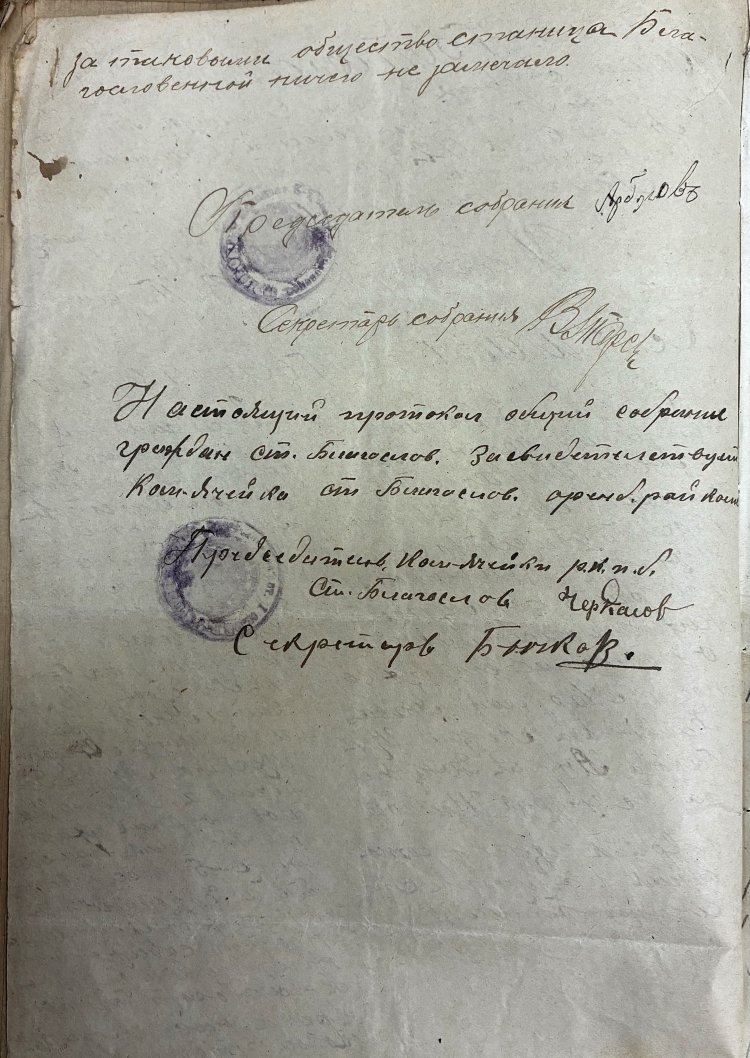 за таковыми общество станица Бла-
гословенной ничего не замечало.
Председатель собрания Арбузовъ
Секретарь собрания
Настоящий протокол общий собрания
граждан ст. Благослов. засвидетелствует
Ком-ячейка ст Благослов. оренб. райком
Председатель Ком-ячейки р.к.п.б.
Ст. Благослов Черкасов
Секретарь Бычков.